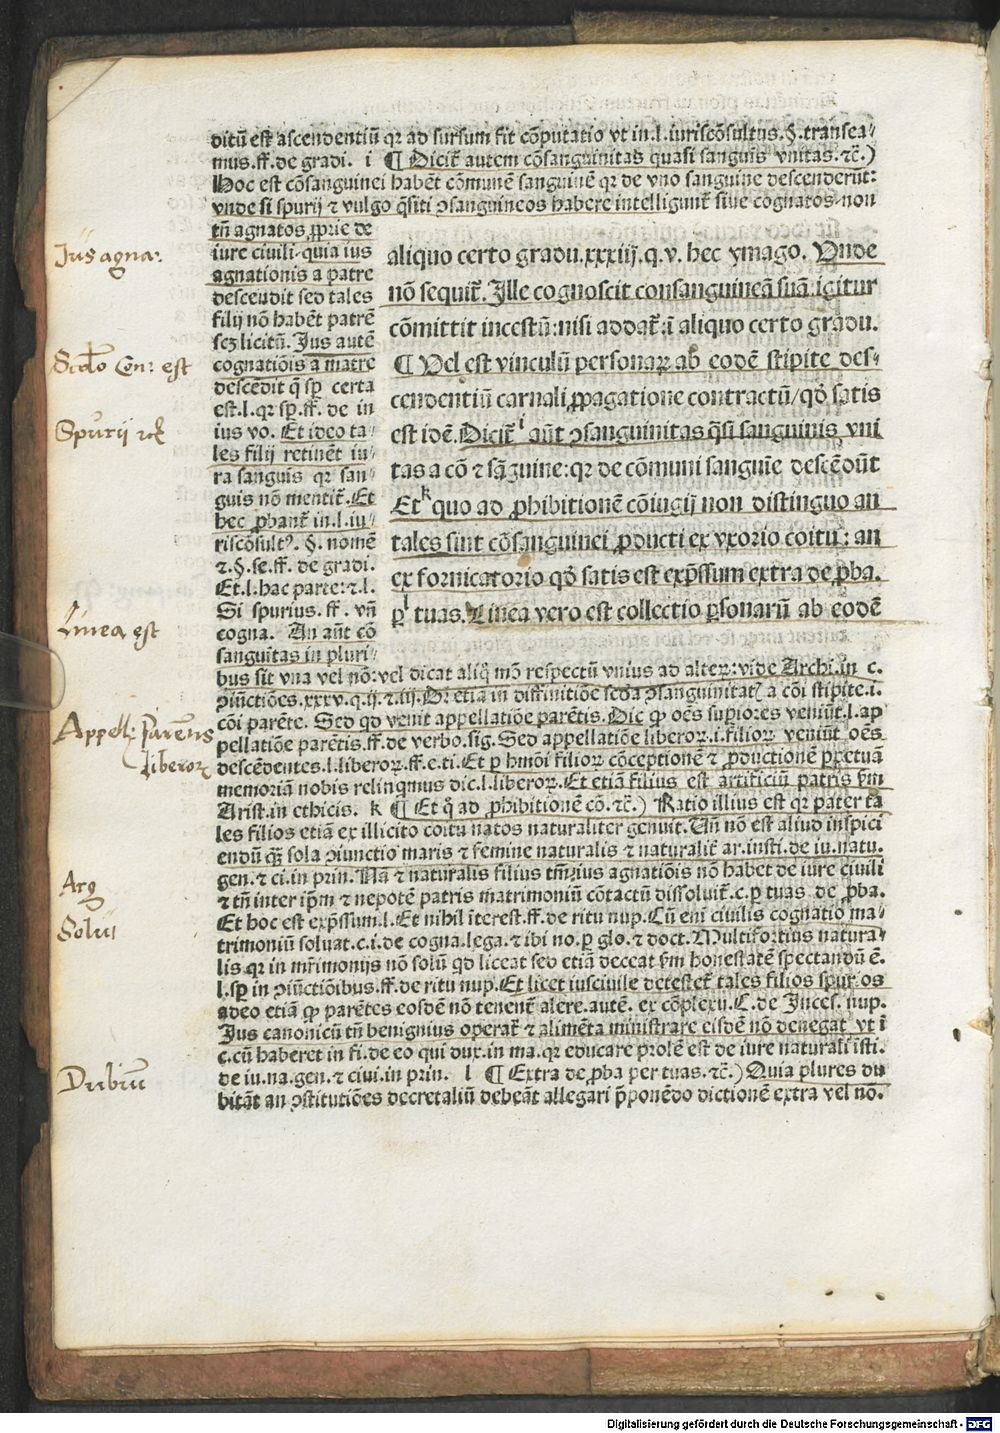 ditū est ascendentiū qr ad sursum fit cōputatio vt in.l.iuriscōsultus.§.transea-
mus.ff.de gradi. i ¶ Dicit̄ autem cōsanguinitas quasi sanguīs vnitas.⁊c̄.)
Hoc est cōsanguinei habēt cōmunē sanguinē qr de vno sanguine descenderūt:
vnde si spurij ⁊ vulgo q̄siti ꝯsanguineos habere intelligunt̄ siue cognatos.non
tn̄ agnatos ꝓprie de
iure ciuili.quia ius
agnationis a patre
descendit sed tales
filij nō habēt patrē
sez licitū. Jus autē
cognatiōis a matre
descēdit q̄ sp̄ certa
est.l.qr sp̄.ff. de in
ius vo. Et ideo ta-
les filij retinēt iu-
ra sanguīs qr san-
guis nō mentit̄. Et
hec ꝓbant̄ in.l.iu-
riscōsultꝰ. §. nomē
⁊.§.se.ff. de gradi.
Et.l.hac parte:⁊.l.
Si spurius.ff. vn̄
cogna. An aūt cō
sanguītas in pluri-
aliquo certo gradu.xxxiij.q.v. hec ymago. Vnde
nō sequit̄. Jlle cognoscit consanguineā suā:igitur
cōmittit incestū:nisi addat̄:ī aliquo certo gradu.
¶ Vel est vinculū personaꝝ ab eodē stipite des-
cendentiū carnali ꝓpagatione contractū/qd̄ satis
est idē. Dicit̄ i aūt ꝯsanguinitas q̄si sanguinis vni
tas a cō ⁊ sāguine:qr de cōmuni sanguīe descēdūt
Et k quo ad ꝓhibitionē cōiugij non distinguo an
tales sint cōsanguinei ꝓducti ex vxorio coitu: an
ex fornicatorio qd̄ satis est exp̄ssum extra de ꝓba.
ꝑ l tuas. Linea vero est collectio ꝑsonarū ab eodē
bus sit vna vel nō:vel dicat aliq̄ mō respectū vnius ad alteꝝ:vide Archi.in c.
ꝯiūctiōes.xxxv.q.ij.⁊.iij. Dr etiā in diffinitiōe scda ꝯsanguinitatꝭ a cōi stipite.i.
cōi parēte. Sed qd venit appellatiōe parētis. Dic ꝙ oēs supiores veniūt.l.ap
pellatiōe parētis.ff.de verbo.sig. Sed appellatiōe liberoꝝ.i.filioꝝ veniūt oēs
descēdentes.l.liberoꝝ.ff.e.ti. Et ꝑ hmōi filioꝝ cōceptionē ⁊ ꝓductionē ꝑpetuā
memoriā nobis relinqmus dic.l.liberoꝝ. Et etiā filius est artificiū patris ẜm
Arist.in ethicis. k ¶ Et q̊ ad ꝓhibitionē cō.⁊c̄.) Ratio illius est qr pater ta
les filios etiā ex illicito coitu natos naturaliter genuit. Un̄ nō est aliud inspici
endū q̄ꝫ sola ꝯiunctio maris ⁊ femine naturalis ⁊ naturalit̄ ar.insti.de iu.natu.
gen.⁊ ci.in prin. Nā ⁊ naturalis filius tm̄ ius agnatiōis nō habet de iure ciuili
⁊ tn̄ inter ip̄m ⁊ nepotē patris matrimoniū cōtactū dissoluit̄.c.ꝑ tuas.de ꝓba.
Et hoc est exp̄ssum.l. Et nihil īterest.ff.de ritu nup. Cū em̄ ciuilis cognatio ma-
trimoniū soluat.c.i.de cogna.lega.⁊ ibi no.ꝑ glo.⁊ doct. Multifortius natura-
lis qr in mr̄imonijs nō solū qd liceat sed etiā deceat ẜm honestatē spectandū ē.
l.sp̄ in ꝯiūctiōibus.ff.de ritu nup. Et licet iusciuile detestet̄ tales filios spur.os
adeo etiā ꝙ parētes eosdē nō tenent̄ alere.autē. ex cōplexu.C.de Jnces. nup.
Jus canonicū tn̄ benignius operat̄ ⁊ alimēta ministrare eisdē nō denegat vt ī
c.cū haberet in fi.de eo qui dux.in ma.qr educare prolē est de iure naturali īsti.
de iu.na.gen.⁊ ciui.in prin. l ¶ Extra de ꝓba per tuas.⁊c̄.) Quia plures du
bitāt an ꝯstitutiōes decretaliū debeāt allegari p̄ponēdo dictionē extra vel nō.
Jus agna:
Spurij
Linea est
Appell: Parentis
liberoꝝ
Arg
Solu
Dubiū
Digitalisierung gefördert durch die Deutsche Forschungsgemeinschaft - DFG